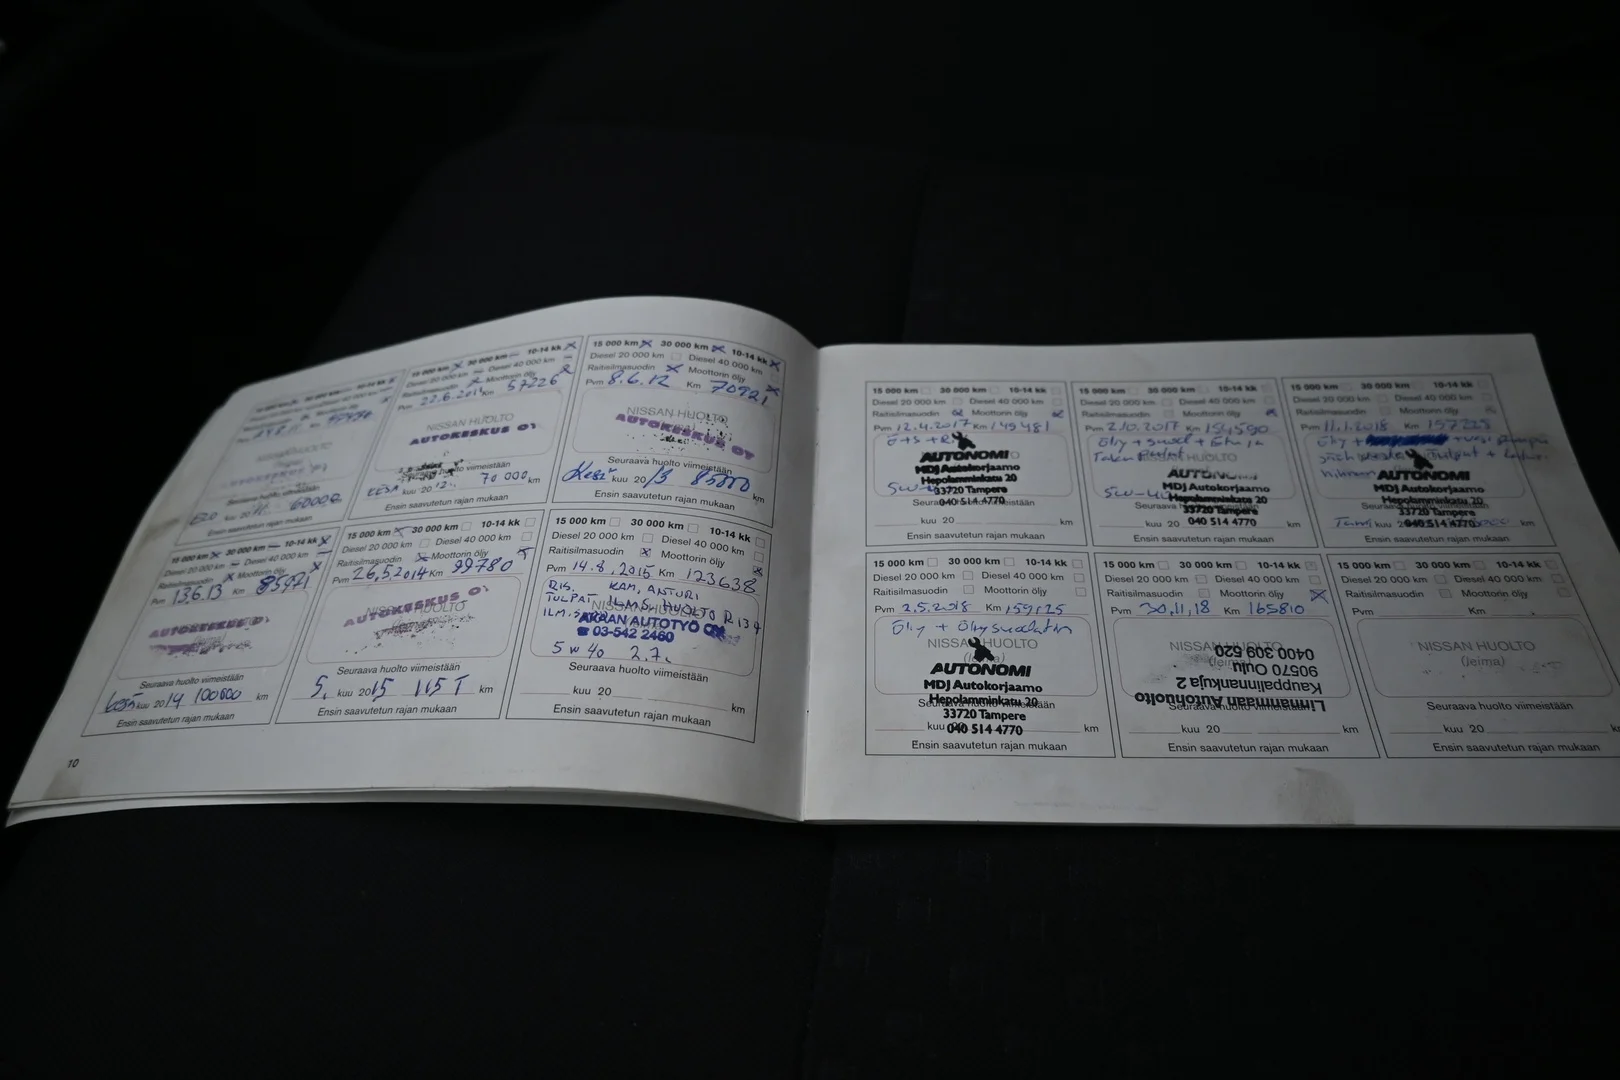 10-14 kk
15 000 km 30 000 km 10-14 kk
Diesel 20 000 km Diesel 40 000 km
Raitisilmasuodin Moottorin öljy
Pvm 22.6.2011 Km 57226
NISSAN HUOLTO
AUTOKESKUS OY
Seuraava huolto viimeistään
KESÄ kuu 2012 70 000 km
Ensin saavutetun rajan mukaan
15 000 km 30 000 km 10-14 kk
Diesel 20 000 km Diesel 40 000 km
Raitisilmasuodin Moottorin öljy
Pvm 8.6.12 Km 70921
NISSAN HUOLTO
AUTOKESKUS OY
Seuraava huolto viimeistään
Kesä kuu 20/3 85000 km
Ensin saavutetun rajan mukaan
15 000 km 30 000 km 10-14 kk
Diesel 20 000 km Diesel 40 000 km
Raitisilmasuodin Moottorin öljy
Pvm 13.6.13 Km 85921
AUTOKESKUS
Seuraava huolto viimeistään
kuu 2014 100000 km
Ensin saavutetun rajan mukaan
15 000 km 30 000 km 10-14 kk
Diesel 20 000 km Diesel 40 000 km
Raitisilmasuodin Moottorin öljy
Pvm 26.5.2014 Km 99780
NISSAN HUOLTO
AUTOKESKUS OY
Seuraava huolto viimeistään
5. kuu 2015 115 T km
Ensin saavutetun rajan mukaan
15 000 km 30 000 km 10-14 kk
Diesel 20 000 km Diesel 40 000 km
Raitisilmasuodin Moottorin öljy
Pvm 14.8.2015 Km 123638
KAM. ANTURI
TULPAT ILMS. HUOLTO R134
NISSAN HUOLTO
AKAAN AUTOTYÖ OY
☎ 03-542 2460
5W40 2.7L
Seuraava huolto viimeistään
kuu 20 km
Ensin saavutetun rajan mukaan
10
15 000 km 30 000 km 10-14 kk
Diesel 20 000 km Diesel 40 000 km
Raitisilmasuodin Moottorin öljy
Pvm 12.4.2017 Km 149481
Ö+S+R
AUTONOMI
MDJ Autokorjaamo
Hepolamminkatu 20
33720 Tampere
040 514 4770
kuu 20 km
Ensin saavutetun rajan mukaan
15 000 km 30 000 km 10-14 kk
Diesel 20 000 km Diesel 40 000 km
Raitisilmasuodin Moottorin öljy
Pvm 2.10.2017 Km 154590
AUTONOMI
MDJ Autokorjaamo
Hepolamminkatu 20
33720 Tampere
kuu 20 040 514 4770 km
Ensin saavutetun rajan mukaan
15 000 km 30 000 km 10-14 kk
Diesel 20 000 km Diesel 40 000 km
Raitisilmasuodin Moottorin öljy
Pvm 11.1.2018 Km 157228
AUTONOMI
MDJ Autokorjaamo
Hepolamminkatu 20
33720 Tampere
kuu 040 514 4770 km
Ensin saavutetun rajan mukaan
15 000 km 30 000 km 10-14 kk
Diesel 20 000 km Diesel 40 000 km
Raitisilmasuodin Moottorin öljy
Pvm 2.5.2018 Km 159125
Öljy + Öljysuodatin
NISSAN HUOLTO
(leima)
AUTONOMI
MDJ Autokorjaamo
Hepolamminkatu 20
33720 Tampere
kuu 040 514 4770 km
Ensin saavutetun rajan mukaan
15 000 km 30 000 km 10-14 kk
Diesel 20 000 km Diesel 40 000 km
Raitisilmasuodin Moottorin öljy
Pvm 30.11.18 Km 165810
NISSAN HUOLTO
(leima)
Linnanmaan Autohuolto
Kauppalinnankuja 2
90570 Oulu
0400 309 520
Seuraava huolto viimeistään
kuu 20 km
Ensin saavutetun rajan mukaan
15 000 km 30 000 km 10-14 kk
Diesel 20 000 km Diesel 40 000 km
Raitisilmasuodin Moottorin öljy
Pvm Km
NISSAN HUOLTO
(leima)
Seuraava huolto viimeistään
kuu 20 km
Ensin saavutetun rajan mukaan